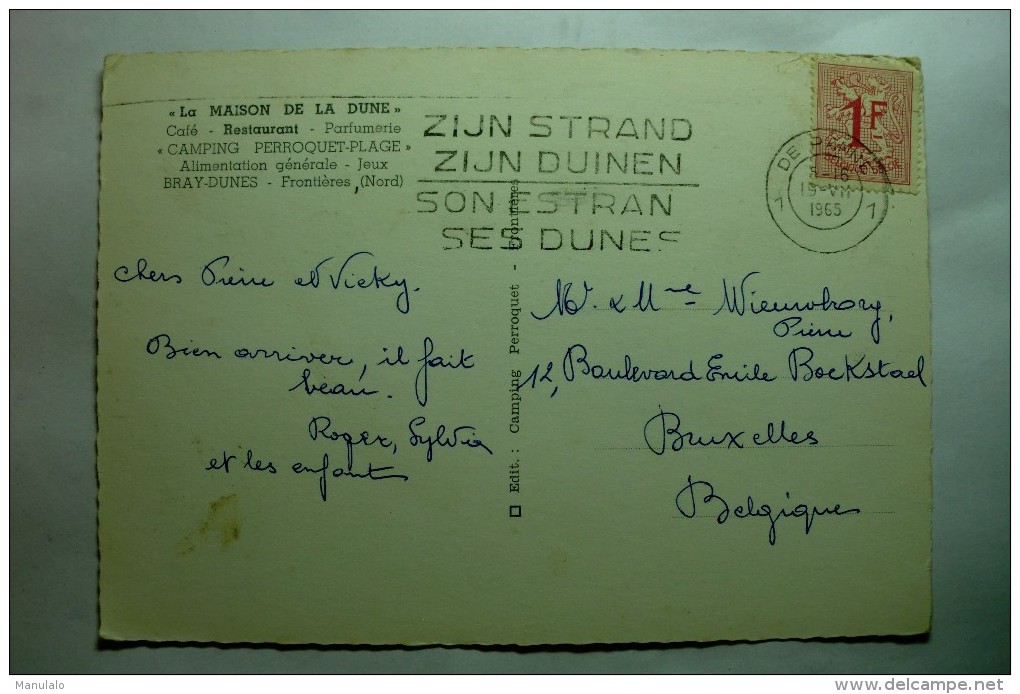 « La MAISON DE LA DUNE »
Café - Restaurant - Parfumerie
« CAMPING PERROQUET-PLAGE »
Alimentation générale - Jeux
BRAY-DUNES - Frontières (Nord)
ZIJN STRAND
ZIJN DUINEN
SON ESTRAN
SES DUNES
DE PANNE
16
1965
1 1
1F
BELGIQUE-BELGIE
chers Pierre et Vicky.
Bien arriver, il fait
beau.
Roger, Sylvia
et les enfants
Edit. : Camping Perroquet - Frontières
Mr. & Mme
Pierre
12, Boulevard Emile Bockstael
Bruxelles
Belgique
Manulalo
delcampe.net